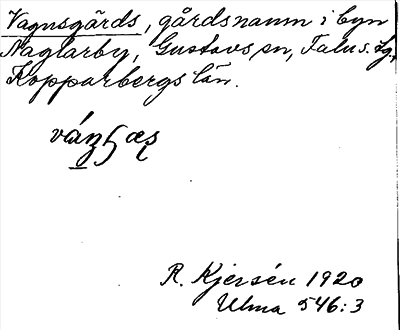 Vagnsgårds, gårdsnamn i byn
Naglarby, Gustavs sn, Falu s. lg,
Kopparbergs län.
R. Kjersén 1920
Ulma 546:3